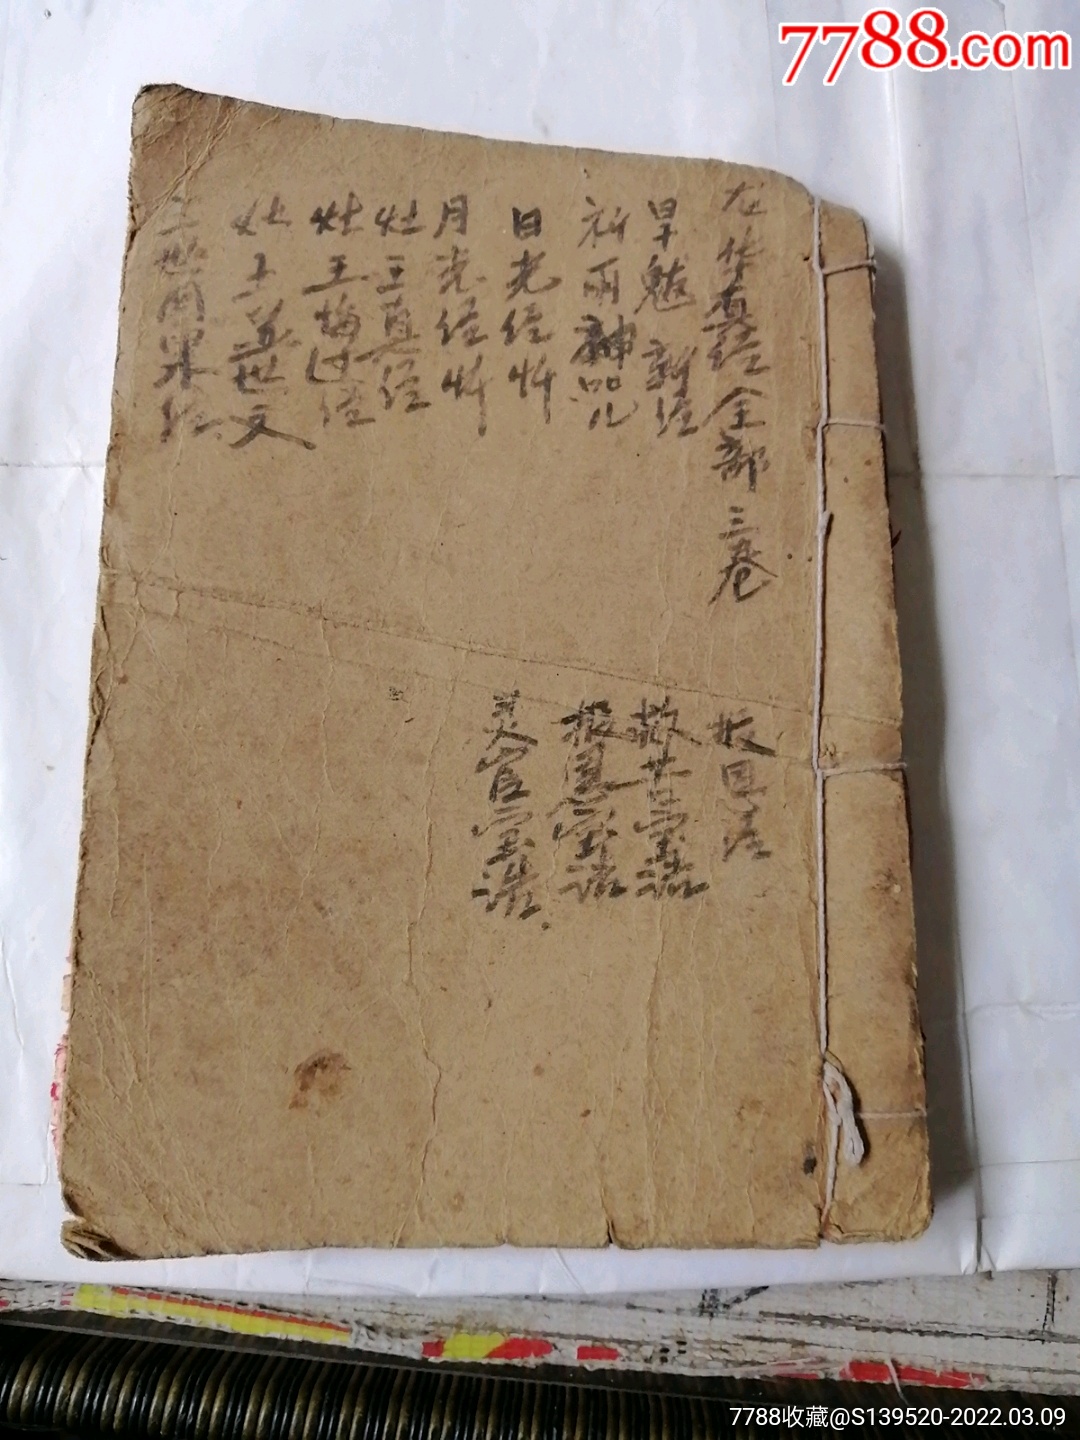 7788.com
龙华真经全部三卷
旱魃新经
祈雨神咒
日光经忏
月光经忏
灶王真经
灶王悔过经
灶王 世文
三世因果经
报恩
救苦宝诰
报恩宝诰
灵官宝诰
7788收藏@S139520-2022.03.09